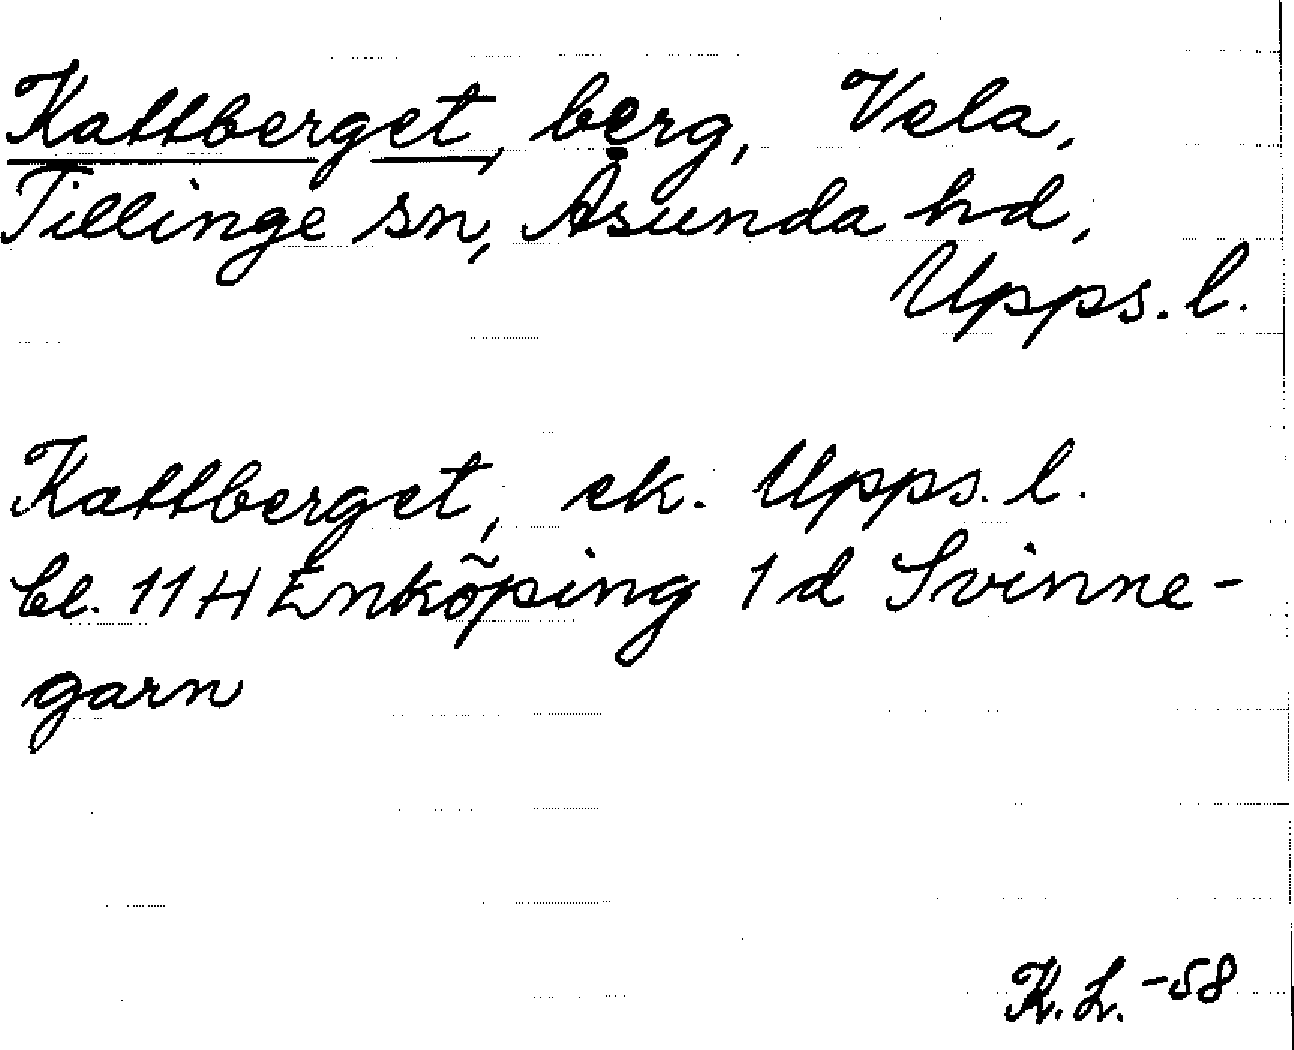 Kattberget, berg, Vela,
Tillinge sn, Åsunda hd,
Upps. l.
Kattberget, ek. Upps. l.
bl. 11 H Enköping 1 d Svinne-
garn
K. L. -58